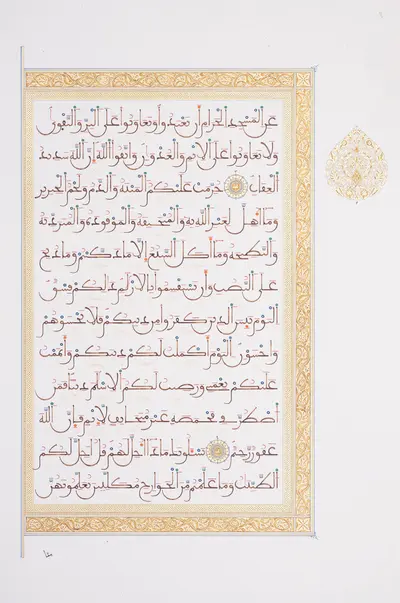 عن المسجد الحرام أن تعتدوا وتعاونوا على البر والتقوى
ولا تعاونوا على الإثم والعدون واتقوا الله إن الله شديد
العقاب حرمت عليكم الميتة والدم ولحم الخنزير
وما أهل لغير الله به والمنخنقة والموقوذة والمتردية
والنطيحة وما أكل السبع إلا ما ذكيتم وما ذبح
على النصب وأن تستقسموا بالأزلم ذلكم فسق
اليوم يئس الذين كفروا من دينكم فلا تخشوهم
واخشون اليوم أكملت لكم دينكم وأتممت
عليكم نعمتي ورضيت لكم الإسلم دينا فمن
اضطر في مخمصة غير متجانف لإثم فإن الله
غفور رحيم يسئلونك ماذا أحل لهم قل أحل لكم
الطيبت وما علمتم من الجوارح مكلبين تعلمونهن